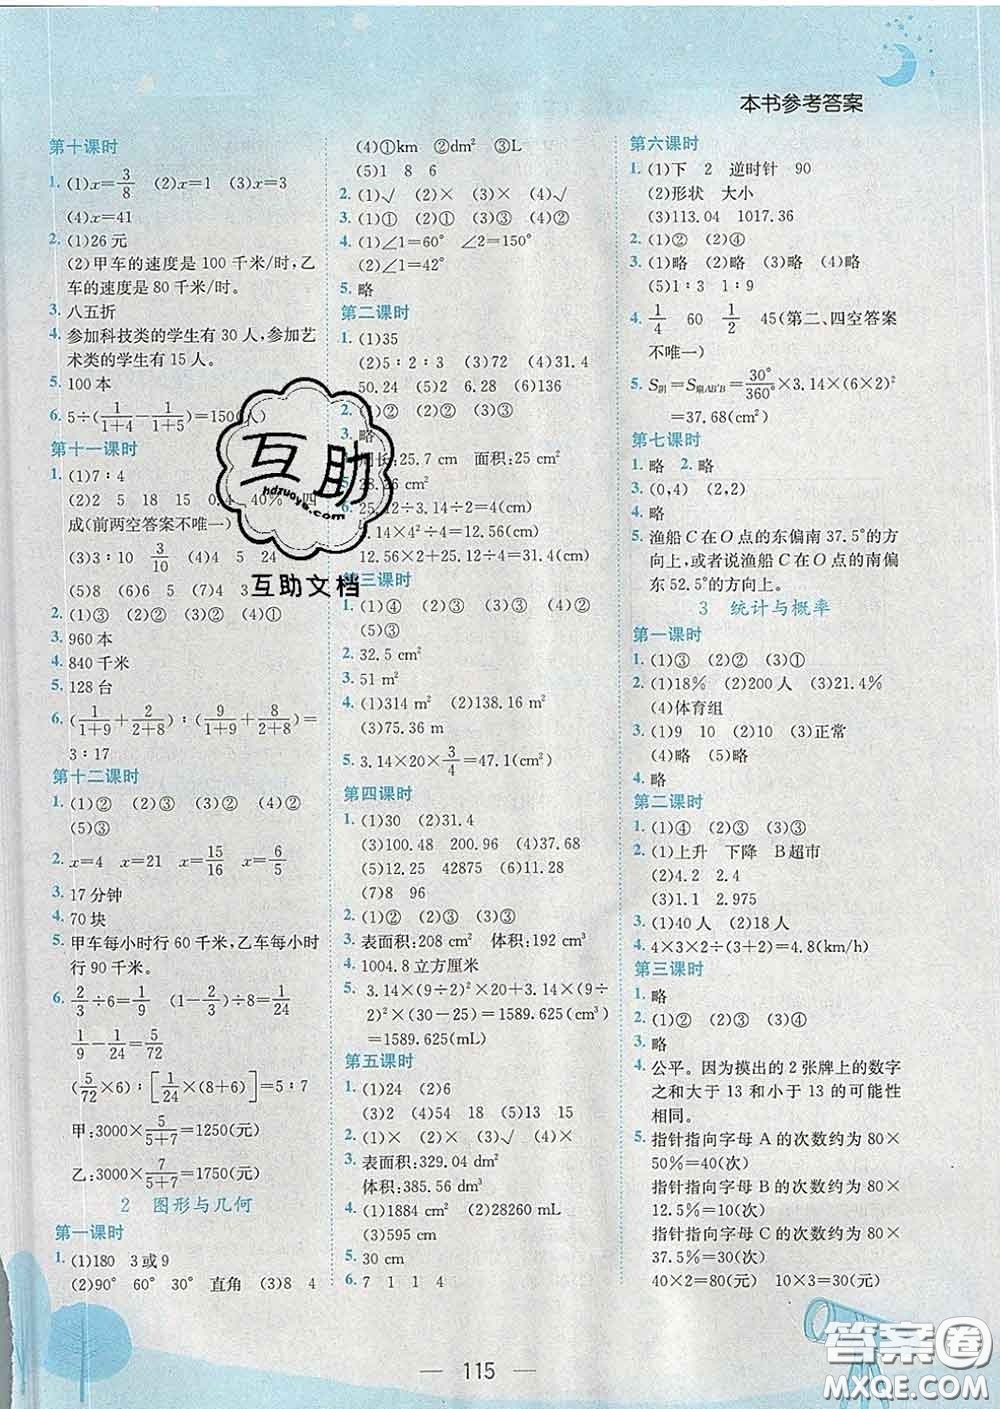 本书参考答案
第十课时
1. (1)x=3/8 (2)x=1 (3)x=3
(4)x=41
2. (1)26元
(2)甲车的速度是100千米/时,乙
车的速度是80千米/时。
3. 八五折
4. 参加科技类的学生有30人,参加艺
术类的学生有15人。
5. 100本
6. 5÷(1/(1+4)-1/(1+5))=150(人)
第十一课时
1. (1)7∶4
(2)2 5 18 15 0.4 40% 四
成(前两空答案不唯一)
(3)3∶10 3/10 (4)5 24
(5)8 (6)6 5 (7)4 3
2. (1)② (2)③ (3)② (4)①
3. 960本
4. 840千米
5. 128台
6. (1/(1+9)+2/(2+8))∶(9/(1+9)+8/(2+8))=
3∶17
第十二课时
1. (1)② (2)③ (3)② (4)②
(5)③
2. x=4 x=21 x=15/16 x=6/5
3. 17分钟
4. 70块
5. 甲车每小时行60千米,乙车每小时
行90千米。
6. 2/3÷6=1/9 (1-2/3)÷8=1/24
1/9-1/24=5/72
(5/72×6)∶[1/24×(8+6)]=5∶7
甲:3000×5/(5+7)=1250(元)
乙:3000×7/(5+7)=1750(元)
2 图形与几何
第一课时
1. (1)180 3或9
(2)90° 60° 30° 直角 (3)8 4
(4)①km ②dm² ③L
(5)1 8 6
2. (1)√ (2)× (3)× (4)×
3. (1)① (2)① (3)③ (4)②
4. (1)∠1=60° ∠2=150°
(2)∠1=42°
5. 略
第二课时
1. (1)35
(2)5∶2∶3 (3)72 (4)16
50.24 (5)2 6.28 (6)136
2. (1)② (2)③ (3)①
3. 略
周长:25.7 cm 面积:25 cm²
28.26 cm²
6. 25.12÷3.14÷2=4(cm)
3.14×4²÷4=12.56(cm)
12.56×2+25.12÷4=31.4(cm)
第三课时
1. (1)④ (2)③ (3)② (4)③
(5)③
2. 32.5 cm²
3. 51 m²
4. (1)314 m² (2)116.18 m²
(3)75.36 m
5. 3.14×20×3/4=47.1(cm²)
第四课时
1. (1)30 (2)31.4
(3)100.48 200.96 (4)37.68
(5)12.56 42875 (6)160
(7)8 96
2. (1)② (2)③ (3)① (4)②
3. 表面积:208 cm² 体积:192 cm³
4. 1004.8立方厘米
5. 3.14×(9÷2)²×20+3.14×(9÷
2)²×(30-25)=1589.625(cm³)
=1589.625(mL)
第五课时
1. (1)24 (2)6
(3)2 (4)54 (5)13 15
2. (1)× (2)× (3)√ (4)×
3. 表面积:329.04 dm²
体积:385.56 dm³
4. (1)1884 cm² (2)28260 mL
(3)595 cm
5. 30 cm
6. 7 1 1 4
第六课时
1. (1)下 2 逆时针 90
(2)形状 大小
(3)113.04 1017.36
2. (1)② (2)④
3. (1)略 (2)略 (3)略 (4)略
(5)1∶3 1∶9
4. 1/4 60 1/2 45(第二、四空答案
不唯一)
5. S阴=S扇AB′B=30°/360°×3.14×(6×2)²
=37.68(cm²)
第七课时
1. 略 2. 略
3. (0,4) (2,2)
4. 略
5. 渔船C在O点的东偏南37.5°的方
向上,或者说渔船C在O点的南偏
东52.5°的方向上。
3 统计与概率
第一课时
1. (1)③ (2)③ (3)①
2. (1)18% (2)200人 (3)21.4%
(4)体育组
3. (1)9 10 (2)10 (3)正常
(4)略 (5)略
4. 略
第二课时
1. (1)④ (2)③ (3)②
2. (1)上升 下降 B超市
(2)4.2
(3)1.1 2.975
3. (1)40人 (2)18人
4. 4×3×2÷(3+2)=4.8(km/h)
第三课时
1. 略
2. (1)② (2)③ (3)④
3. 略
4. 公平。因为摸出的2张牌上的数字
之和大于13和小于13的可能性
相同。
5. 指针指向字母A的次数约为80×
50%=40(次)
指针指向字母B的次数约为80×
12.5%=10(次)
指针指向字母C的次数约为80×
37.5%=30(次)
40×2=80(元) 10×3=30(元)
互助
hdzuoye.com
互助文档
115
答案圈
MXQE.COM